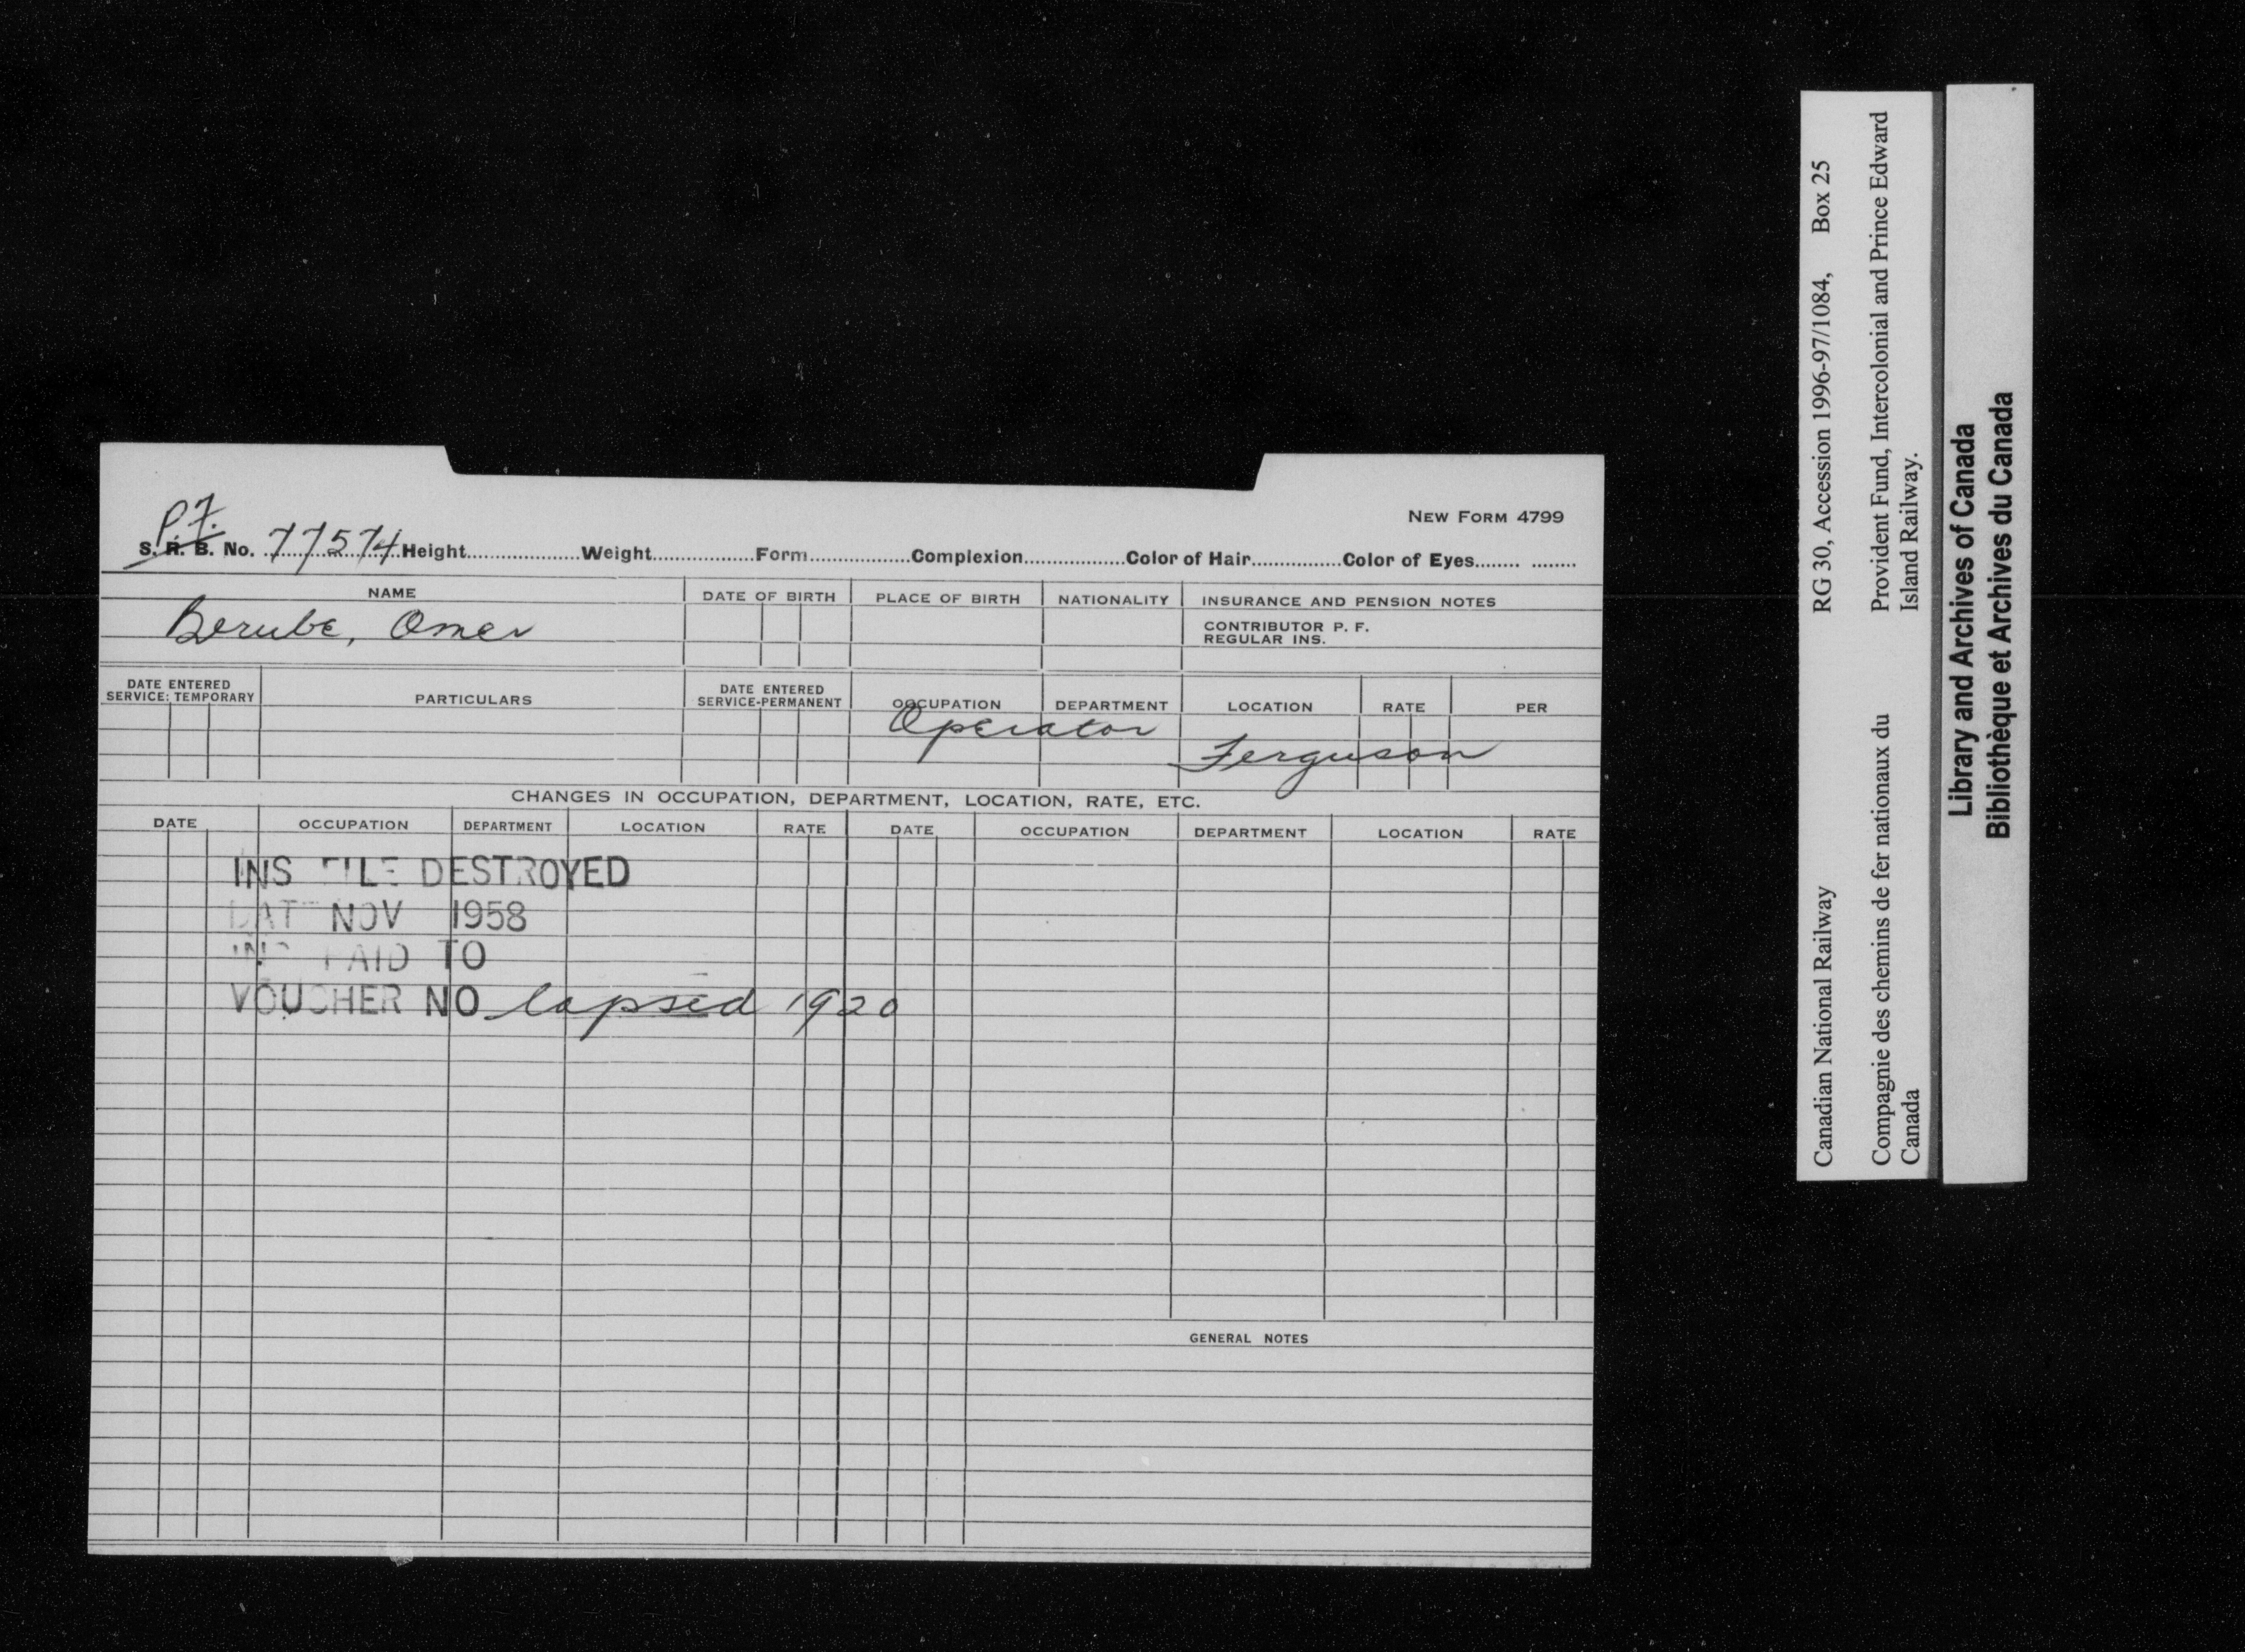 NEW FORM 4799
P.F.
S. R. B. No. 77574 Height Weight Form Complexion Color of Hair Color of Eyes
NAME DATE OF BIRTH PLACE OF BIRTH NATIONALITY INSURANCE AND PENSION NOTES
Berube, Omer
CONTRIBUTOR P. F.
REGULAR INS.
DATE ENTERED SERVICE: TEMPORARY PARTICULARS DATE ENTERED SERVICE-PERMANENT OCCUPATION DEPARTMENT LOCATION RATE PER
Operator
Ferguson
CHANGES IN OCCUPATION, DEPARTMENT, LOCATION, RATE, ETC.
DATE OCCUPATION DEPARTMENT LOCATION RATE DATE OCCUPATION DEPARTMENT LOCATION RATE
INS FILE DESTROYED
DATE NOV 1958
INS PAID TO
VOUCHER NO lapsed 1920
GENERAL NOTES
Canadian National Railway RG 30, Accession 1996-97/1084, Box 25
Compagnie des chemins de fer nationaux du Provident Fund, Intercolonial and Prince Edward
Canada Island Railway.
Library and Archives of Canada
Bibliothèque et Archives du Canada